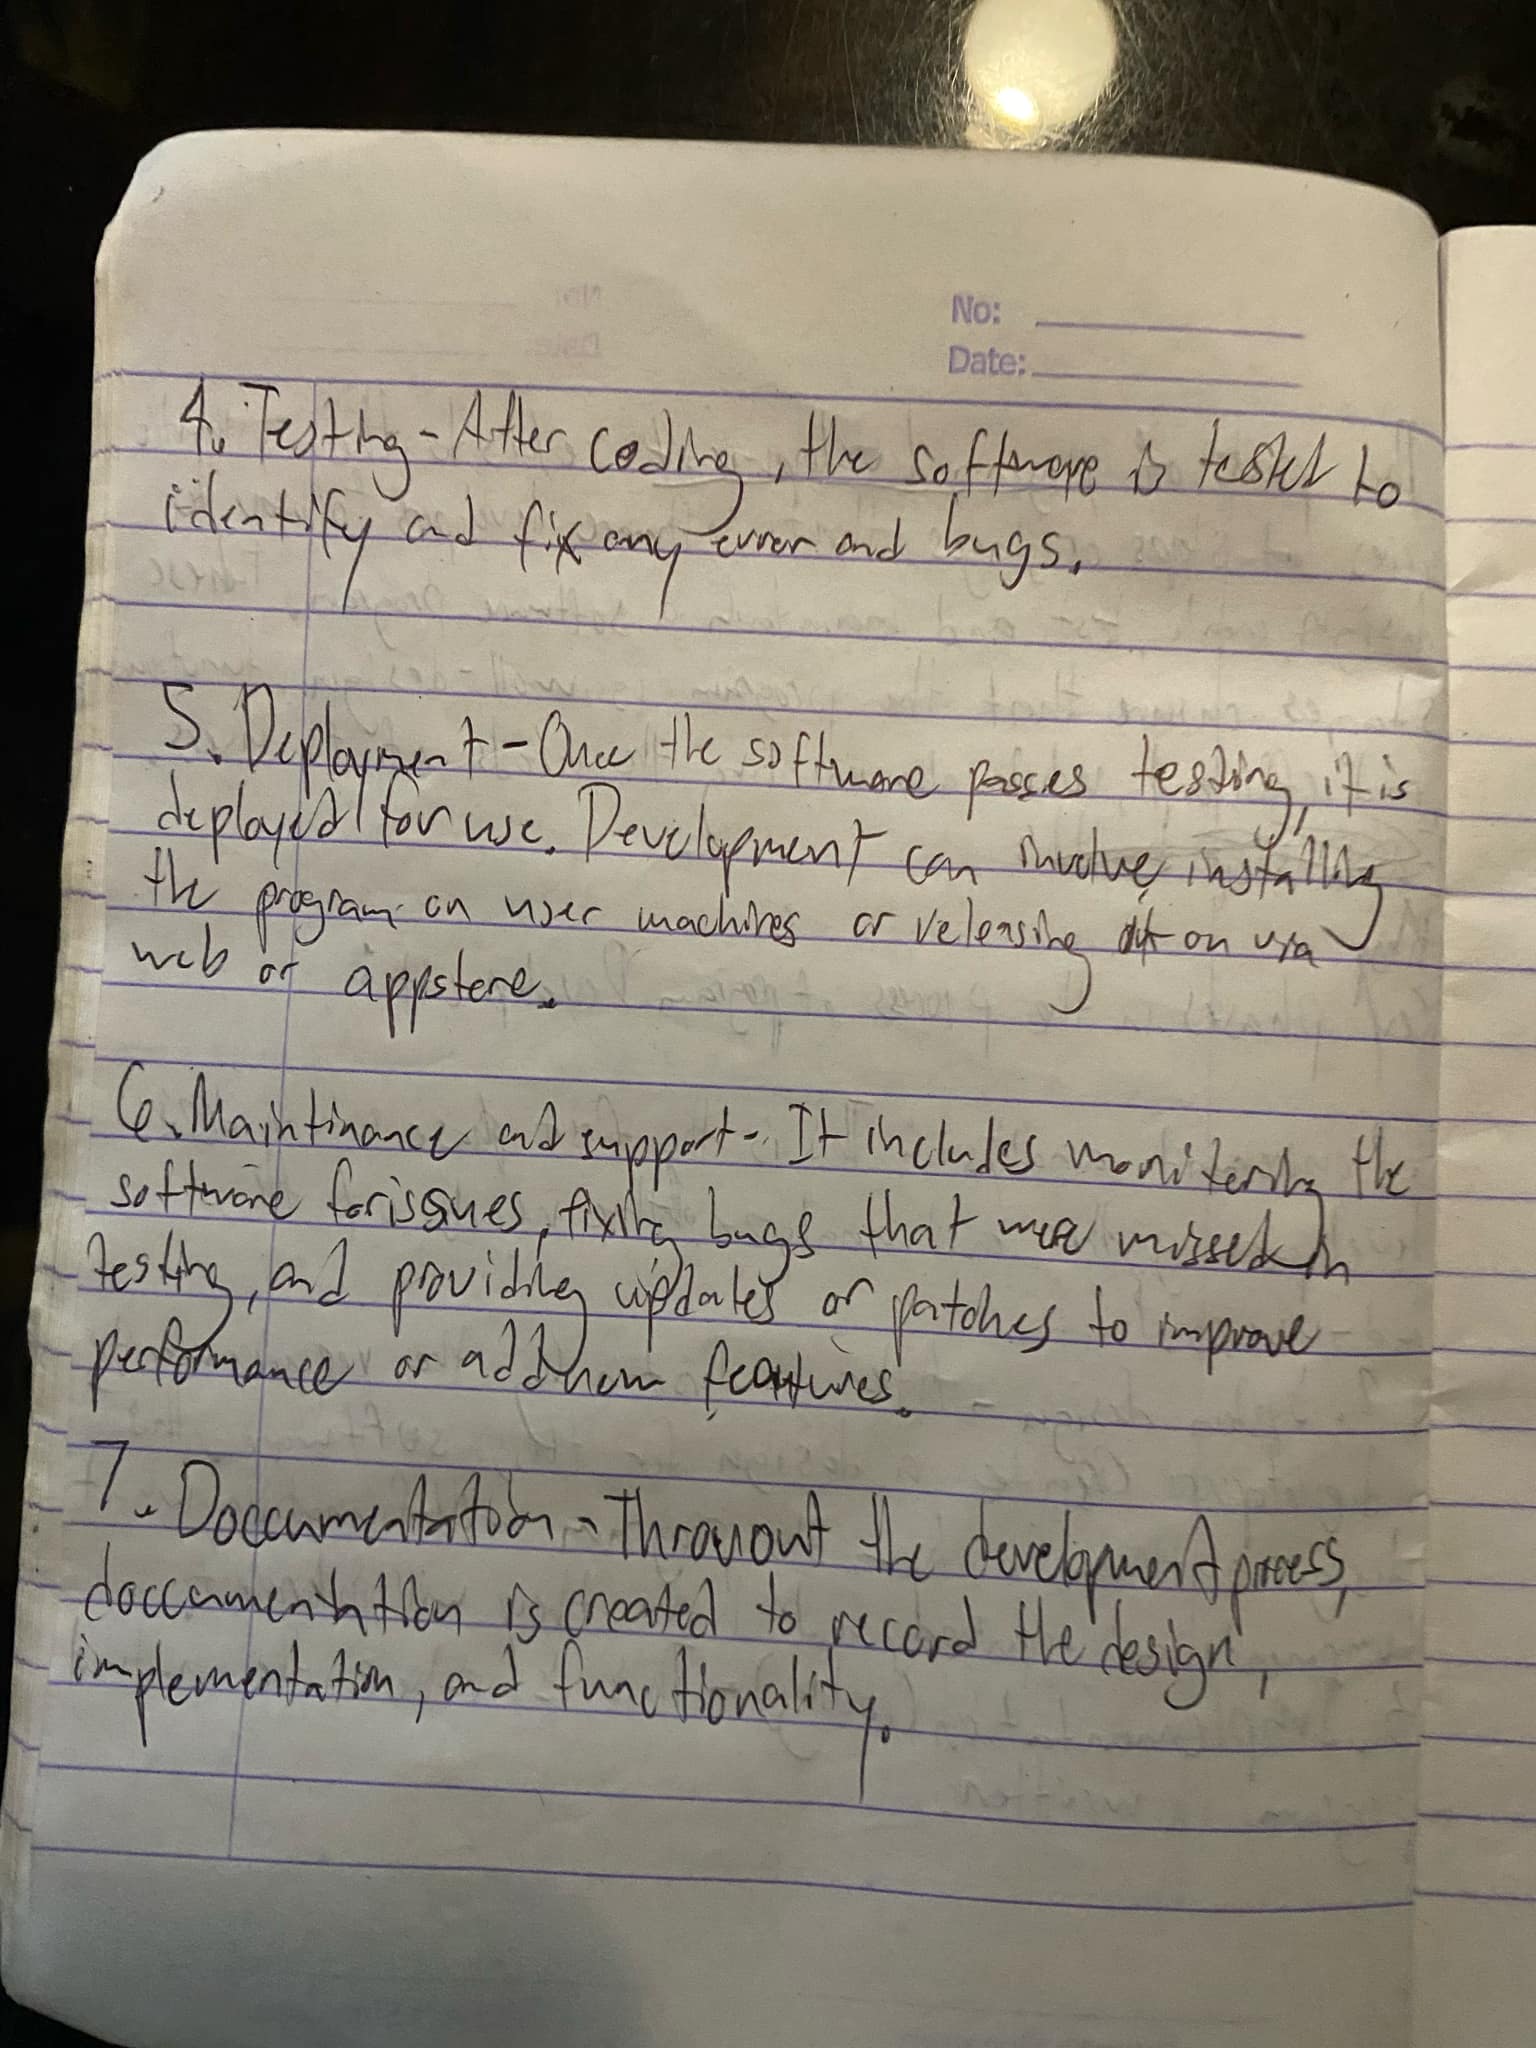 No:
Date:
4. Testing - After coding, the software is tested to
identify and fix any error and bugs.
5. Deployment - Once the software passes testing, it is
deployed for use. Development can involve installing
the program on user machines or releasing on via
web or appstore.
6. Maintinance and support - It includes monitering the
software for issues, fixing bugs that were missed in
testing, and providing updates or patches to improve
performance or add new features.
7. Doccumentation - Throuout the development process,
doccumentation is created to record the design,
implementation, and functionality.